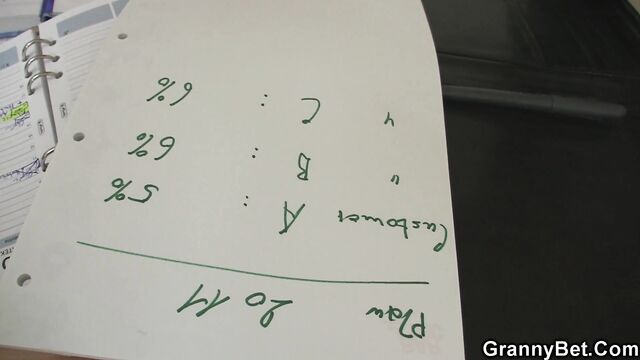 Plan 2011
Customer A : 5%
" B : 6%
" C : 6%
GrannyBet.Com